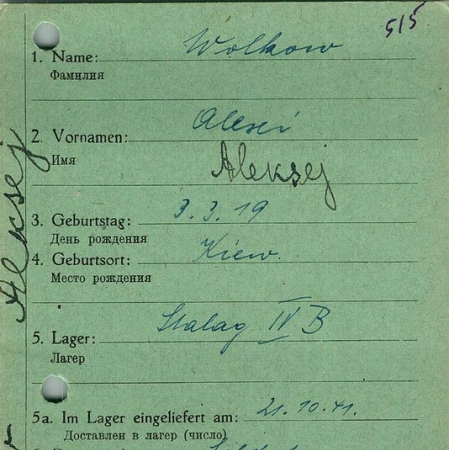 515
1. Name: Wolkow
Фамилия
2. Vornamen: Alexei
Имя Aleksej
3. Geburtstag: 3.3.19
День рождения
4. Geburtsort: Kiew.
Место рождения
5. Lager: Stalag IV B
Лагер
5a. Im Lager eingeliefert am: 21.10.41.
Доставлен в лагер (число)
Aleksej